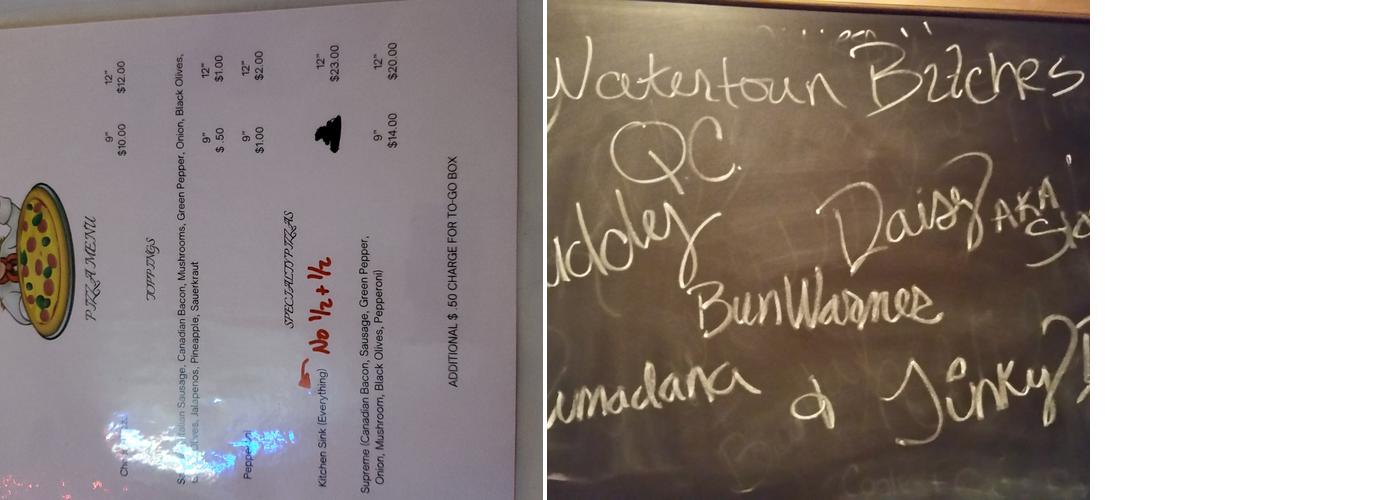 PIZZA MENU
9" 12"
$10.00 $12.00
TOPPINGS
Sausage, Canadian Bacon, Mushrooms, Green Pepper, Onion, Black Olives,
Jalapenos, Pineapple, Sauerkraut
9" 12"
$ .50 $1.00
9" 12"
$1.00 $2.00
SPECIALTY PIZZAS
No ½ + ½
Kitchen Sink (Everything) 12"
$23.00
Supreme (Canadian Bacon, Sausage, Green Pepper, 9" 12"
Onion, Mushroom, Black Olives, Pepperoni) $14.00 $20.00
ADDITIONAL $ .50 CHARGE FOR TO-GO BOX
Watertown Bitches
QC
Daisy AKA
BunWarmer
& Jinky